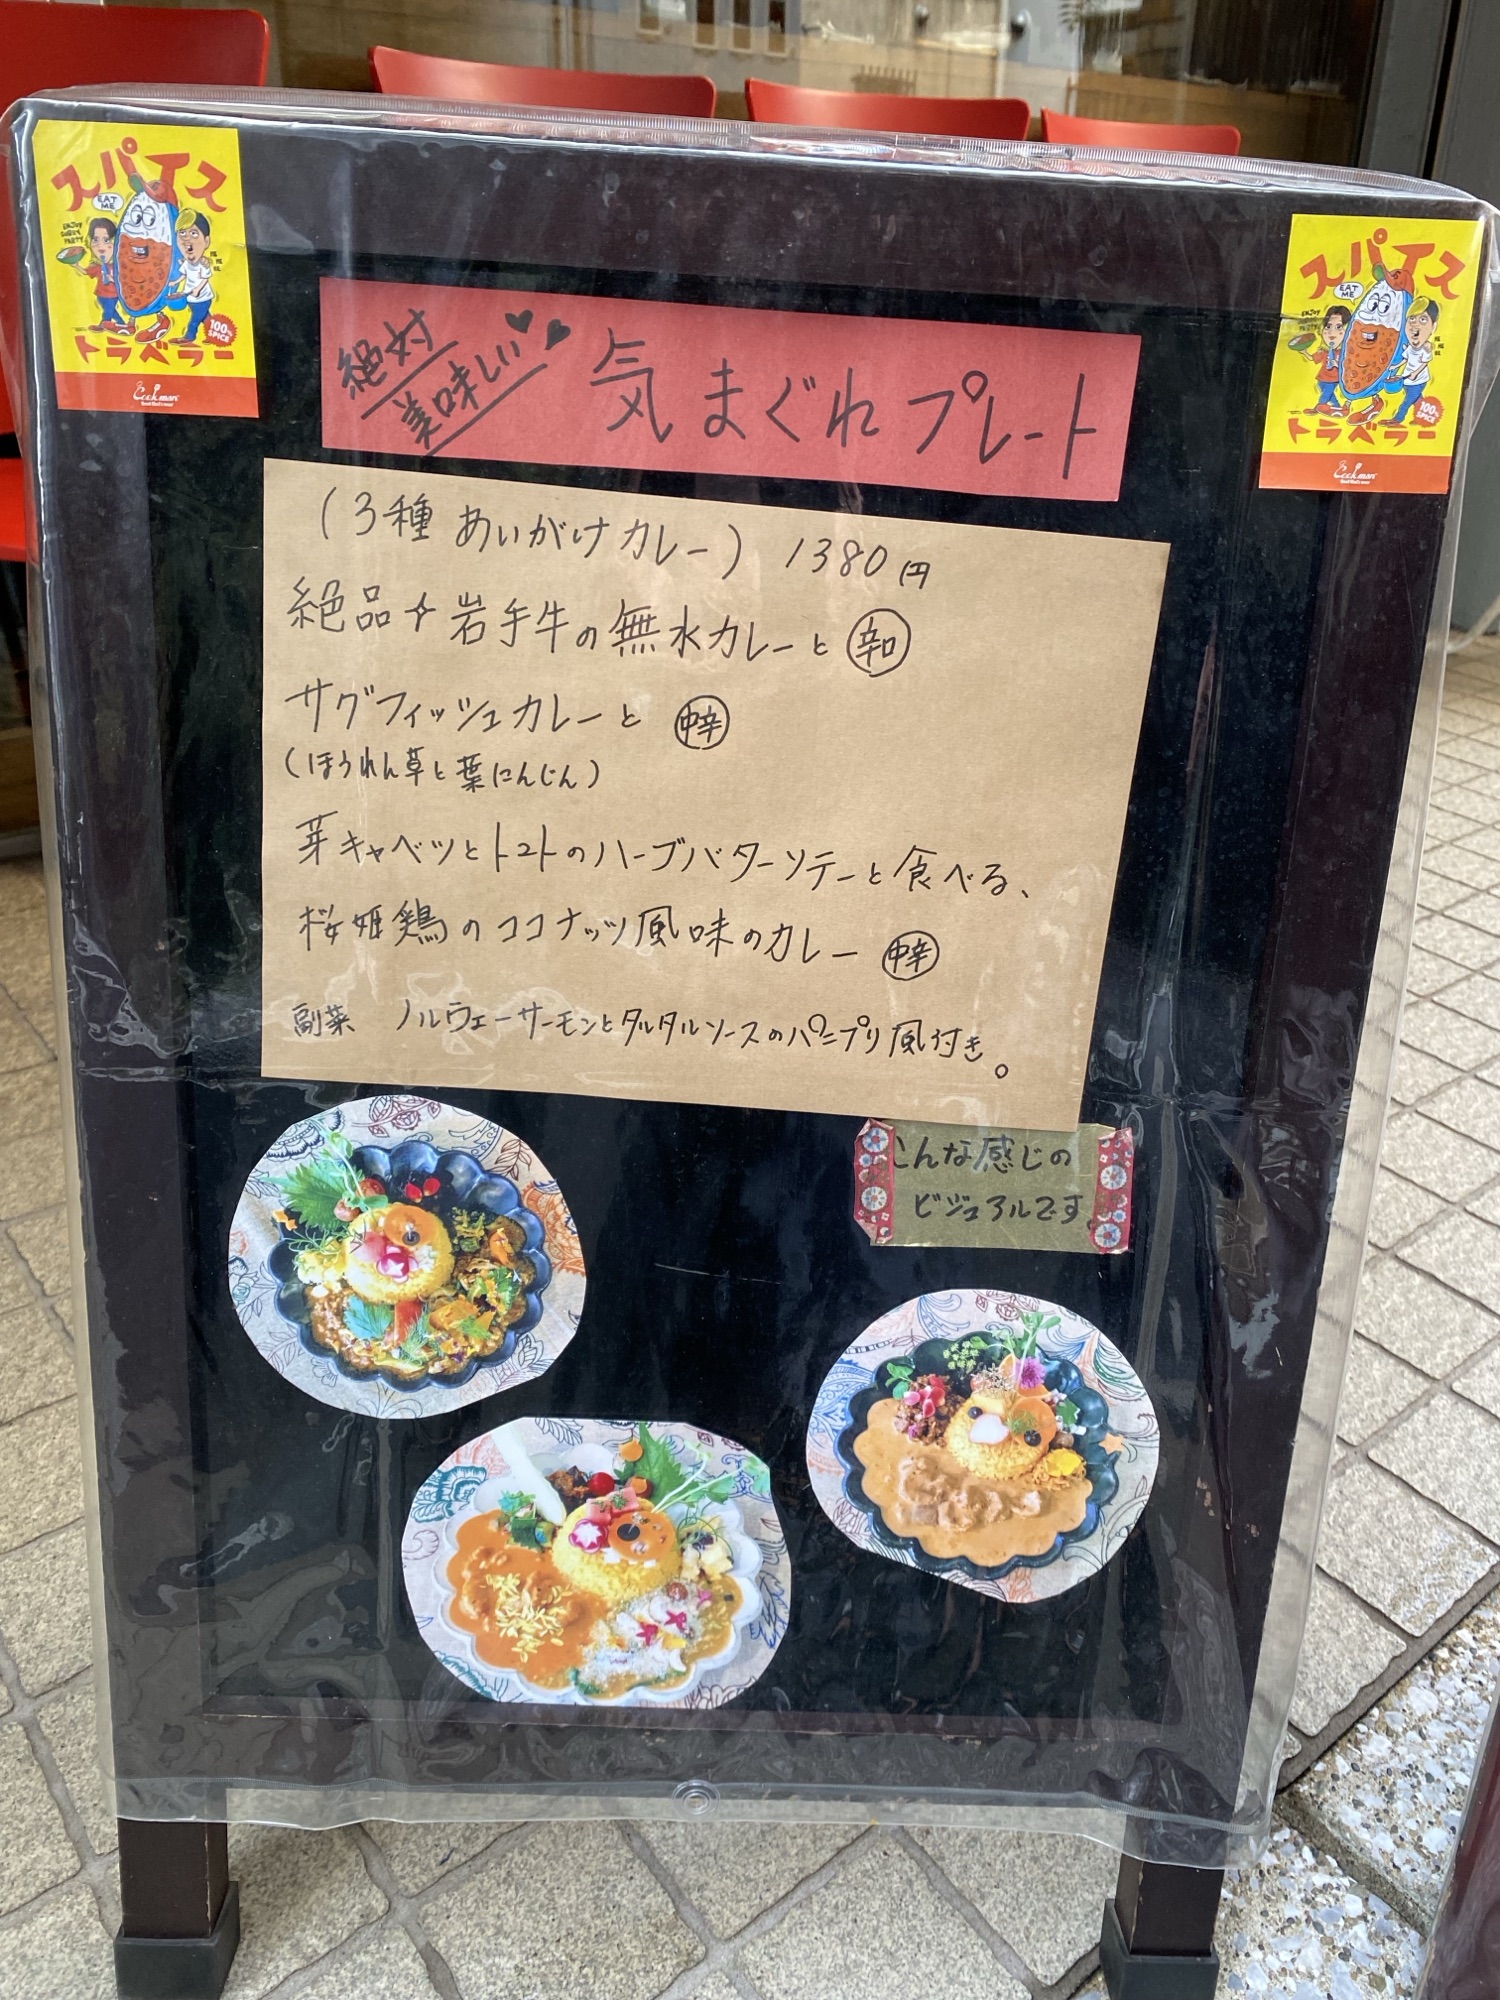 スパイス
EAT ME
ENJOY CURRY PARTY
100% SPICE
トラベラー
Cookman
スパイス
EAT ME
100% SPICE
トラベラー
Cookman
絶対
美味しい♥♥
気まぐれプレート
(3種 あいがけカレー) 1380円
絶品✧岩手牛の無水カレーと 辛口
サグフィッシュカレーと 中辛
(ほうれん草と葉にんじん)
芽キャベツとトマトのハーブバターソテーと食べる、
桜姫鶏のココナッツ風味のカレー 中辛
副菜 ノルウェーサーモンとタルタルソースのパニプリ風付き。
こんな感じの
ビジュアルです。